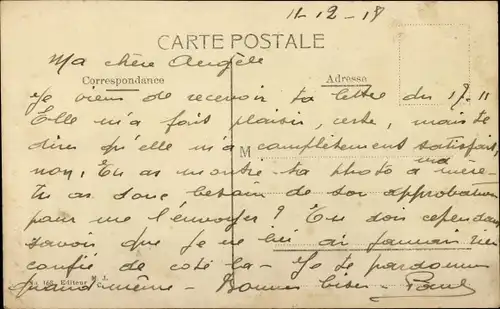 11-12-18
CARTE POSTALE
Ma chère Angèle
Correspondance
Adresse
Je viens de recevoir ta lettre du 17.11
Elle m'a fait plaisir, certe, mais te
dire qu'elle m'a complètement satisfait,
M
non, Tu as montré ta photo à ma mère -
tu as donc besoin de son approbation
pour me l'envoyer ? Tu dois cependant
savoir que je ne lui ai jamais rien
confié de coté la - Je te pardonne
No 168. Editeur
quand-même - Bonnes bises - Paul